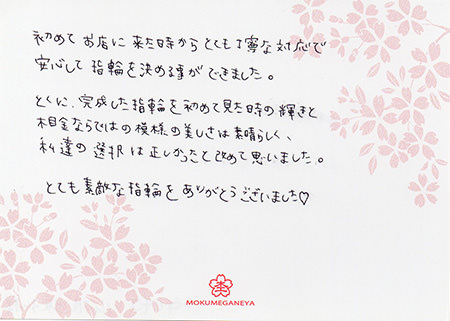 初めてお店に来た時からとても丁寧な対応で
安心して指輪を決める事ができました。
とくに、完成した指輪を初めて見た時の輝きと
木目金ならではの模様の美しさは素晴らしく、
私達の選択は正しかったと改めて思いました。
とても素敵な指輪をありがとうございました♡
MOKUMEGANEYA